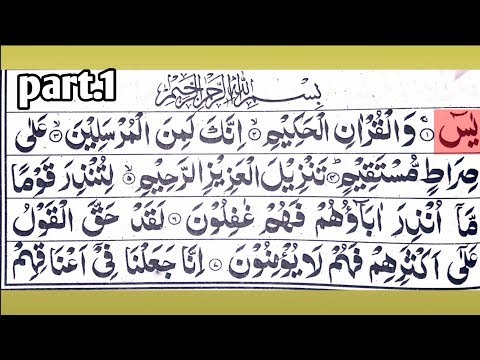 part.1
بِسْمِ اللّٰهِ الرَّحْمٰنِ الرَّحِيْمِ
يٰسٓ ۝١ وَالْقُرْاٰنِ الْحَكِيْمِ ۝٢ اِنَّكَ لَمِنَ الْمُرْسَلِيْنَ ۝٣ عَلٰى
صِرَاطٍ مُّسْتَقِيْمٍ ۝٤ تَنْزِيْلَ الْعَزِيْزِ الرَّحِيْمِ ۝٥ لِتُنْذِرَ قَوْمًا
مَّاۤ اُنْذِرَ اٰبَآؤُهُمْ فَهُمْ غٰفِلُوْنَ ۝٦ لَقَدْ حَقَّ الْقَوْلُ
عَلٰۤى اَكْثَرِهِمْ فَهُمْ لَا يُؤْمِنُوْنَ ۝٧ اِنَّا جَعَلْنَا فِيْۤ اَعْنَاقِهِمْ